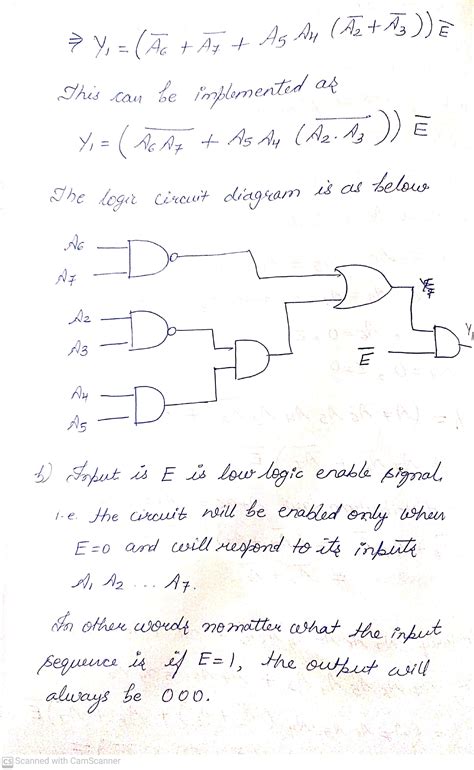 ⇒ Y₁ = (A̅₆ + A̅₇ + A₅ A₄ (A̅₂ + A̅₃)) E̅
This can be implemented as
Y₁ = ( \overline{A₆A₇} + A₅ A₄ ( \overline{A₂.A₃} )) E̅
The logic circuit diagram is as below
A₆
A₇
A₂
A₃
A₄
A₅
E̅
Y₁
b) Input is E is low logic enable signal,
i.e. the circuit will be enabled only when
E=0 and will respond to its inputs
A₁ A₂ ... A₇.
In other words no matter what the input
sequence is if E=1, the output will
always be 000.
CS Scanned with CamScanner